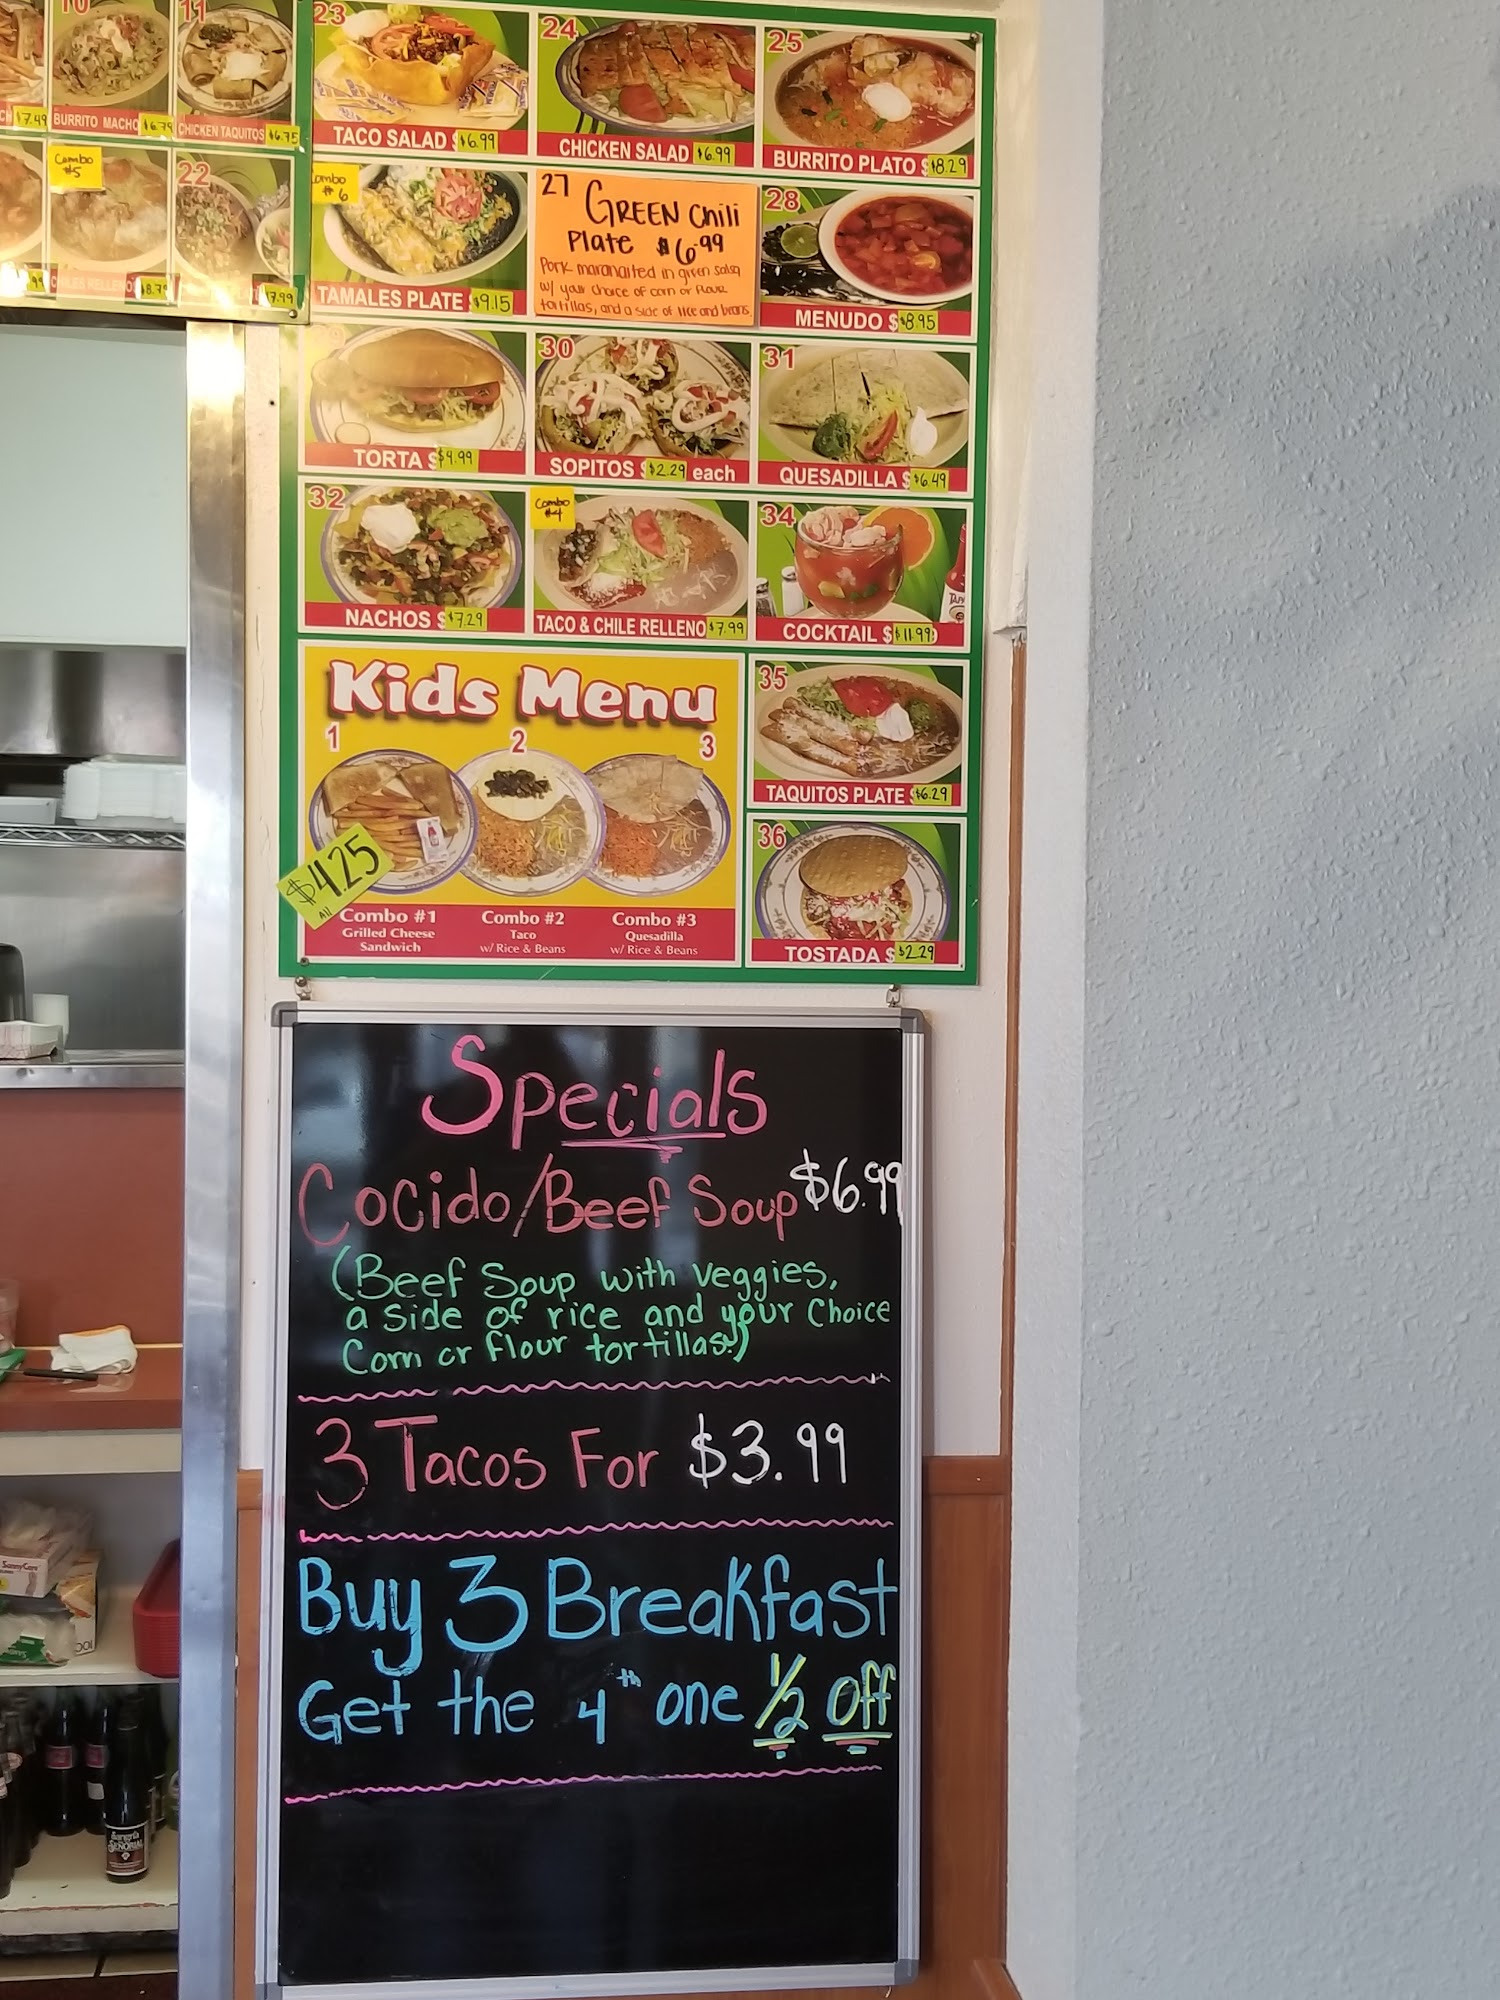 10
11
$7.49
BURRITO MACHO $6.79
CHICKEN TAQUITOS $6.75
Combo
#5
22
CHILES RELLENOS $8.79
$7.99
23
TACO SALAD $6.99
24
CHICKEN SALAD $6.99
25
BURRITO PLATO $8.29
Combo
#6
TAMALES PLATE $9.15
27 GREEN Chili
Plate $6.99
Pork maranaited in green salsa
w/ your choice of corn or flour
tortillas, and a side of rice and beans.
28
MENUDO $8.95
TORTA $
30
SOPITOS $2.29 each
31
QUESADILLA $6.49
32
NACHOS $7.29
Combo
#4
TACO & CHILE RELLENO $7.99
34
COCKTAIL $11.99
Kids Menu
1
2
3
$4.25
All
Combo #1
Grilled Cheese
Sandwich
Combo #2
Taco
w/ Rice & Beans
Combo #3
Quesadilla
w/ Rice & Beans
35
TAQUITOS PLATE $6.29
36
TOSTADA $2.29
Specials
Cocido/Beef Soup $6.99
(Beef Soup with veggies,
a side of rice and your choice
Corn or flour tortillas.)
3 Tacos For $3.99
Buy 3 Breakfast
Get the 4th one 1/2 Off
Sangría
SEÑORIAL